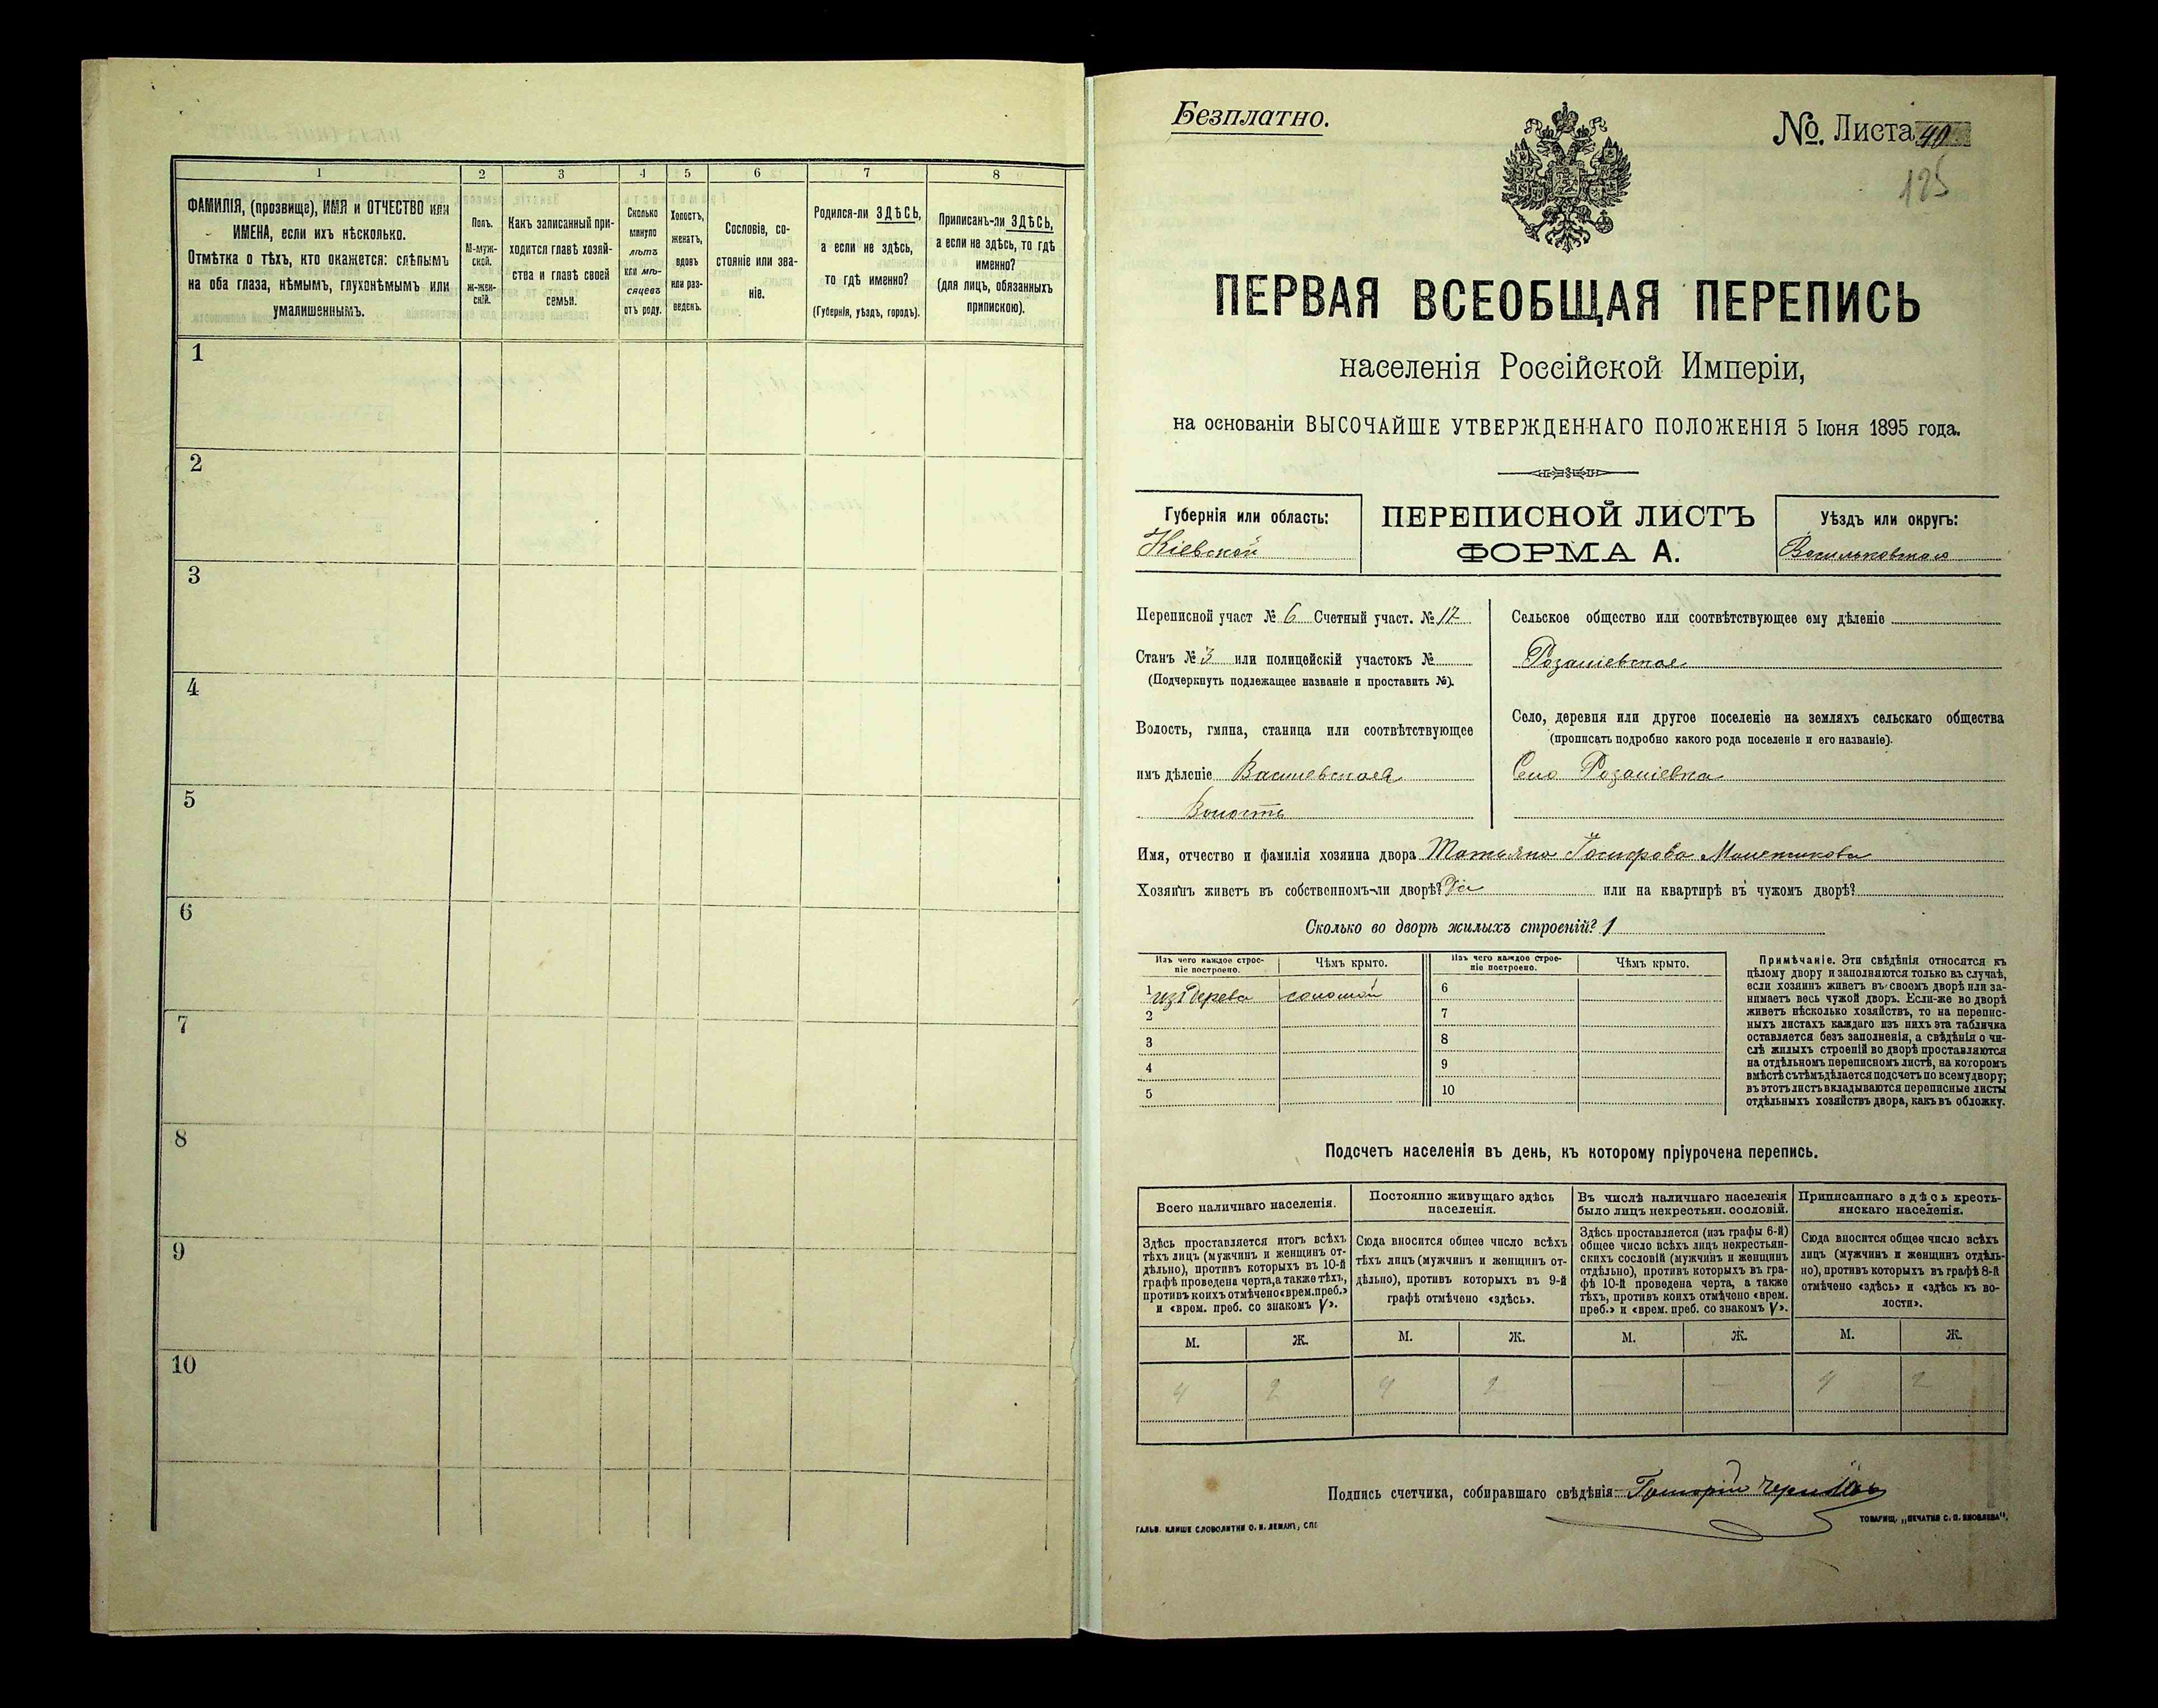 1 2 3 4 5 6 7 8
ФАМИЛІЯ, (прозвище), ИМЯ и ОТЧЕСТВО или
ИМЕНА, если ихъ нѣсколько.
Отмѣтка о тѣхъ, кто окажется: слѣпымъ
на оба глаза, нѣмымъ, глухонѣмымъ или
умалишеннымъ.
Полъ.
М-муж-
ской.
ж-жен-
скій.
Какъ записанный при-
ходится главѣ хозяй-
ства и главѣ своей
семьи.
Сколько
минуло
лѣтъ
или мѣ-
сяцевъ
отъ роду.
Холостъ,
женатъ,
вдовъ
или раз-
веденъ.
Сословіе, со-
стояніе или зва-
ніе.
Родился-ли ЗДѢСЬ,
а если не здѣсь,
то гдѣ именно?
(Губернія, уѣздъ, городъ).
Приписанъ-ли ЗДѢСЬ,
а если не здѣсь, то гдѣ
именно?
(для лицъ, обязанныхъ
припискою).
1
2
3
4
5
6
7
8
9
10
Безплатно.
№. Листа 40
125
ПЕРВАЯ ВСЕОБЩАЯ ПЕРЕПИСЬ
населенія Россійской Имперіи,
на основаніи ВЫСОЧАЙШЕ УТВЕРЖДЕННАГО ПОЛОЖЕНІЯ 5 Іюня 1895 года.
Губернія или область:
Кіевской
ПЕРЕПИСНОЙ ЛИСТЪ
ФОРМА А.
Уѣздъ или округъ:
Васильковская
Переписной участ № 6 Счетный участ. № 17
Станъ № 3 или полицейскій участокъ №
(Подчеркнуть подлежащее названіе и проставить №).
Волость, гмина, станица или соотвѣтствующее
имъ дѣленіе
Волость
Сельское общество или соотвѣтствующее ему дѣленіе
Село, деревня или другое поселеніе на земляхъ сельскаго общества
(прописать подробно какого рода поселеніе и его названіе).
Село
Имя, отчество и фамилія хозяина двора Татьяна
Хозяинъ живетъ въ собственномъ-ли дворѣ? Да или на квартирѣ въ чужомъ дворѣ?
Сколько во дворѣ жилыхъ строеній? 1
Изъ чего каждое строе-
ніе построено.
Чѣмъ крыто.
Изъ чего каждое строе-
ніе построено.
Чѣмъ крыто.
1 изъ дерева соломой 6
2 7
3 8
4 9
5 10
Примѣчаніе. Эти свѣдѣнія относятся къ
цѣлому двору и заполняются только въ случаѣ,
если хозяинъ живетъ въ своемъ дворѣ или за-
нимаетъ весь чужой дворъ. Если-же во дворѣ
живетъ нѣсколько хозяйствъ, то на перепис-
ныхъ листахъ каждаго изъ нихъ эта табличка
оставляется безъ заполненія, а свѣдѣнія о чи-
слѣ жилыхъ строеній во дворѣ проставляются
на отдѣльномъ переписномъ листѣ, на которомъ
вмѣстѣ съ тѣмъ дѣлается подсчетъ по всему двору;
въ этотъ листъ вкладываются переписные листы
отдѣльныхъ хозяйствъ двора, какъ въ обложку.
Подсчетъ населенія въ день, къ которому пріурочена перепись.
Всего наличнаго населенія.
Здѣсь проставляется итогъ всѣхъ
тѣхъ лицъ (мужчинъ и женщинъ от-
дѣльно), противъ которыхъ въ 10-й
графѣ проведена черта, а также тѣхъ,
противъ коихъ отмѣчено «врем. преб.»
и «врем. преб. со знакомъ V».
Постоянно живущаго здѣсь
населенія.
Сюда вносится общее число всѣхъ
тѣхъ лицъ (мужчинъ и женщинъ от-
дѣльно), противъ которыхъ въ 9-й
графѣ отмѣчено «здѣсь».
Въ числѣ наличнаго населенія
было лицъ некрестьян. сословій.
Здѣсь проставляется (изъ графы 6-й)
общее число всѣхъ лицъ некрестьян-
скихъ сословій (мужчинъ и женщинъ
отдѣльно), противъ которыхъ въ гра-
фѣ 10-й проведена черта, а также
тѣхъ, противъ коихъ отмѣчено «врем.
преб.» и «врем. преб. со знакомъ V».
Приписаннаго здѣсь кресть-
янскаго населенія.
Сюда вносится общее число всѣхъ
лицъ (мужчинъ и женщинъ отдѣль-
но), противъ которыхъ въ графѣ 8-й
отмѣчено «здѣсь» и «здѣсь къ во-
лости».
М. Ж. М. Ж. М. Ж. М. Ж.
4 2 4 2 — — 4 2
Подпись счетчика, собиравшаго свѣдѣнія:
ГАЛЬВ. КЛИШЕ СЛОВОЛИТНИ О. И. ЛЕМАНЪ, СПБ
ТОВАРИЩ. „ПЕЧАТНЯ С. П. ЯКОВЛЕВА".